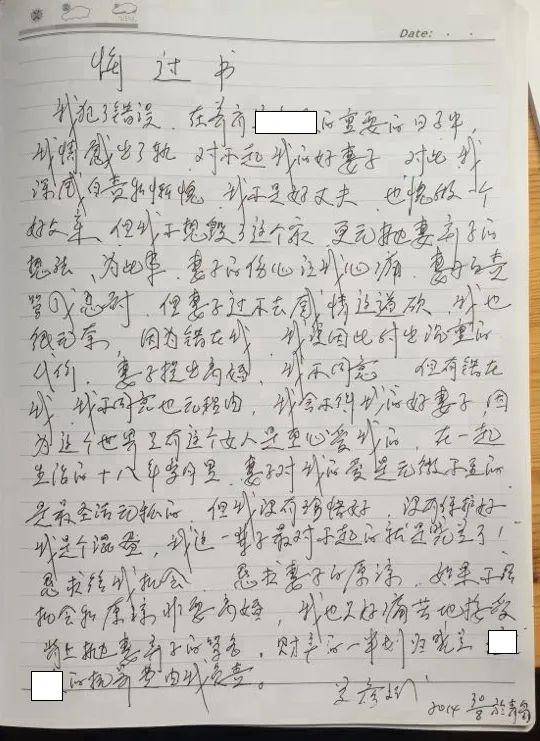 Date:
悔过书
我犯了错误，在养育的重要的日子中，
我情感出了轨，对不起我的好妻子，对此，我
深感自责和惭愧，我不是好丈夫，也愧做一个
好父亲，但我不想毁了这个家，更无抛妻弃子的
想法，为此事，妻子的伤心让我心痛，妻子
但妻子过不去感情这道砍，我也
很无奈，因为错在我，我要因此付出沉重的
代价，妻子提出离婚，我不同意，但有错在
我，我不同意也无理由，我舍不得我的好妻子，因
为这个世界只有这个女人是真心爱我的，在一起
生活的十八年岁月里，妻子对我的爱是无微不至的
是最圣洁无私的，但我没有珍惜好，没有保护好
我是个混蛋，我这一辈子最对不起的就是了！
恳求给我机会，恳求妻子的原谅，如果不给
机会和原谅非要离婚，我也只好痛苦地接受
背上抛妻弃子的骂名，财产的一半划归
的抚养费由我负责。
2014 30/8 於青岛